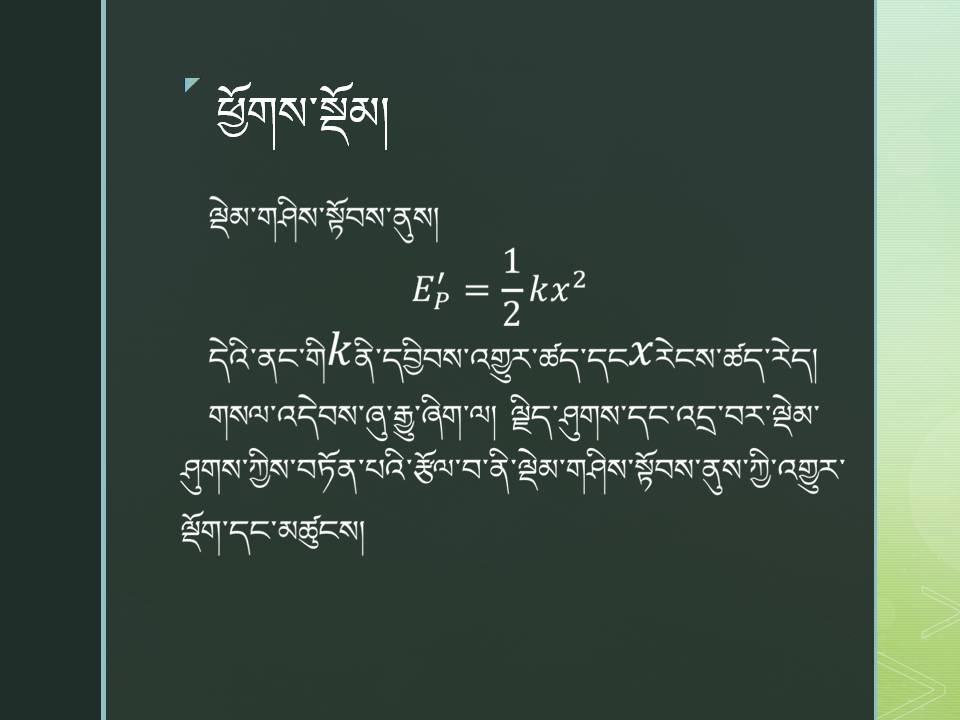 ཕྱོགས་སྡོམ།
ལྡེམ་གཤིས་སྟོབས་ནུས།
E′_P = 1/2 kx²
དེའི་ནང་གི k ནི་དབྱིབས་འགྱུར་ཚད་དང x རེངས་ཚད་རེད།
གསལ་འདེབས་ཞུ་རྒྱུ་ཞིག་ལ། ལྗིད་ཤུགས་དང་འདྲ་བར་ལྡེམ་
ཤུགས་ཀྱིས་བཏོན་པའི་རྩོལ་བ་ནི་ལྡེམ་གཤིས་སྟོབས་ནུས་ཀྱི་འགྱུར་
ལྡོག་དང་མཚུངས།